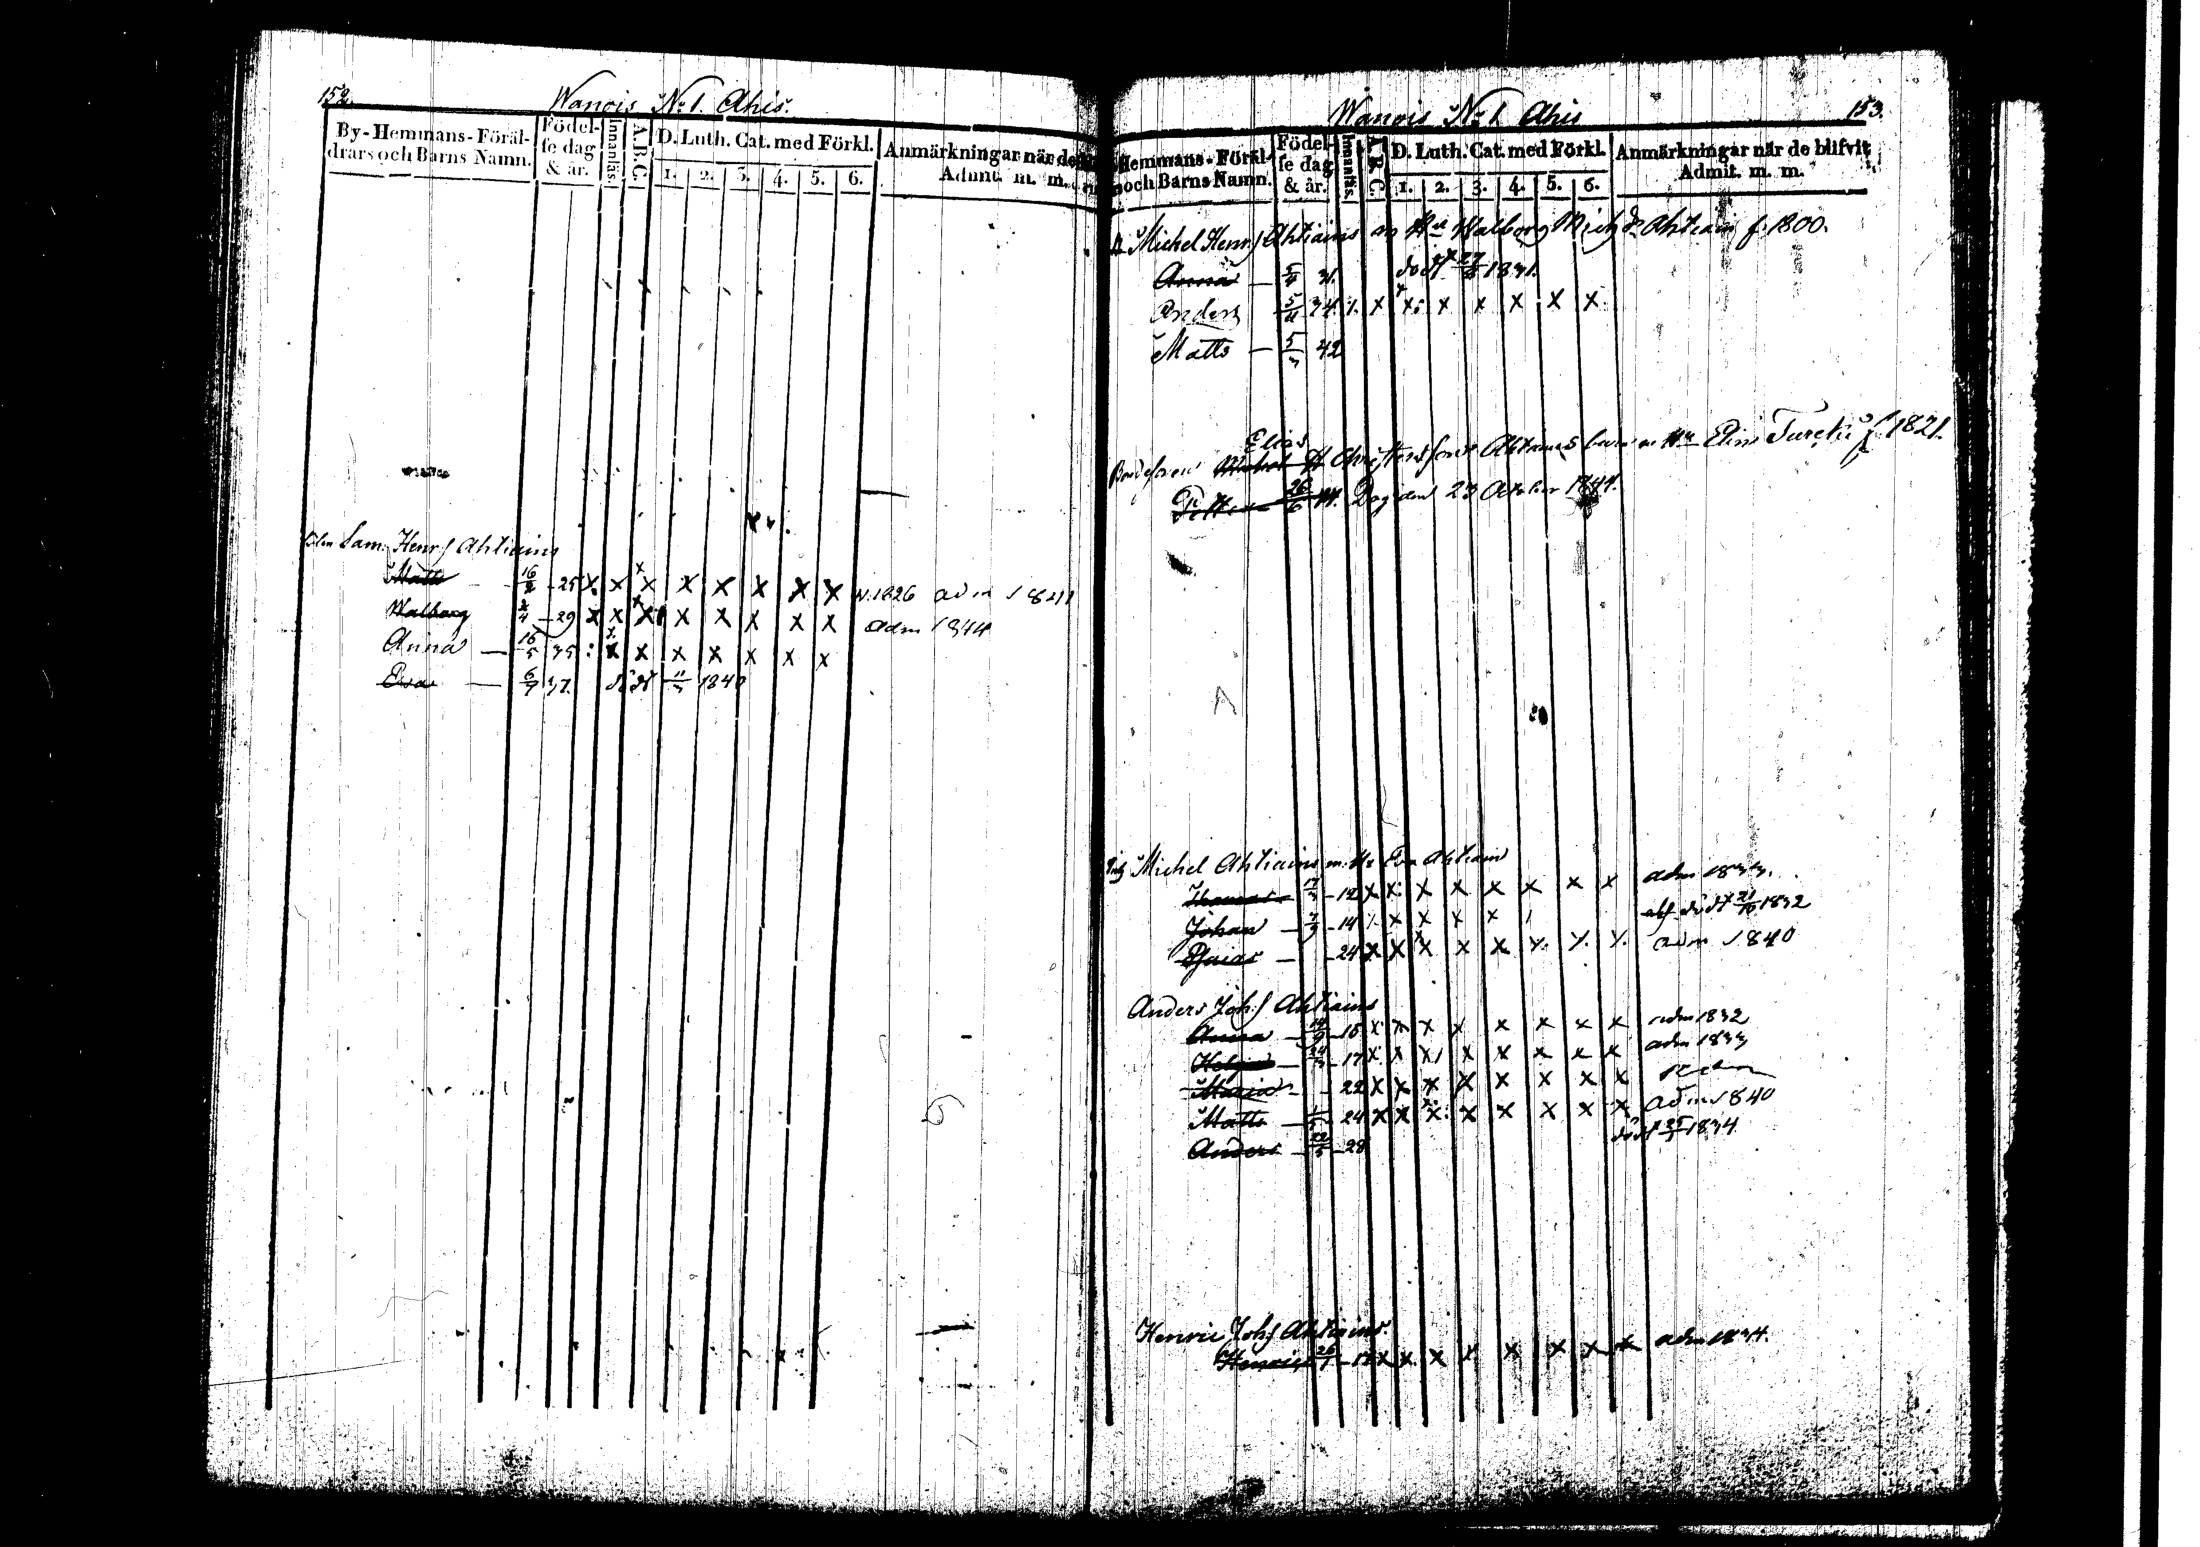 152.
Wanois No 1. Ahis.
By-Hemmans-Föräl-
drars och Barns Namn.
Födel-
se dag
& år.
Innanläs.
A.B.C.
D. Luth. Cat. med Förkl.
1. 2. 3. 4. 5. 6.
Anmärkningar när de
Admit. m. m.
Sam. Henr.s Ahtiains
Matts 16/2 - 25 x x x x x x x x 1826 adm 1841
Walborg 2/4 - 29 x x x x x x x x adm 1844
Anna — 15/5 35 : x x x x x x x
Eva — 6/7 37. död 11/3 1840
153.
Wanois No 1 Ahis
Hemmans-Föräl-
och Barns Namn.
Födel-
se dag
& år.
Innanläs.
A.B.C.
D. Luth. Cat. med Förkl.
1. 2. 3. 4. 5. 6.
Anmärkningar när de blifvit
Admit. m. m.
Michel Henr.s Ahtiains m Hu Walborg Mich.d. Ahtiain f. 1800.
Anna — 5/4 31. död 1831.
Anders 5/11 34 x x x x x x x
Matts — 5/3 42
Elias
Michel Christersson Ahtiains m Hu Elin Turcki f 1821.
Petter 26/6 44. Dog den 23 October 1844.
Michel Ahtiains m. Hu Eva Ahtiain
Thomas 17/3 - 12 x x x x x x x x adm 1833.
Johan — - 14 x x x x död 21/10 1832
Esaias — - 24 x x x x x x x x adm 1840
Anders Joh.s Ahtiains
Anna — 14/9 - 15 x x x x x x x x adm 1832
Helena — 24/3 - 17 x x x x x x x x adm 1833
Maria - - 22 x x x x x x x x
Matts — 24 x x x x x x x x adm 1840
Anders — 22/5 - 28 död 1834
Henric Joh.s Ahtiains.
Henric 26/1 - x x x x x x x x adm 1834.